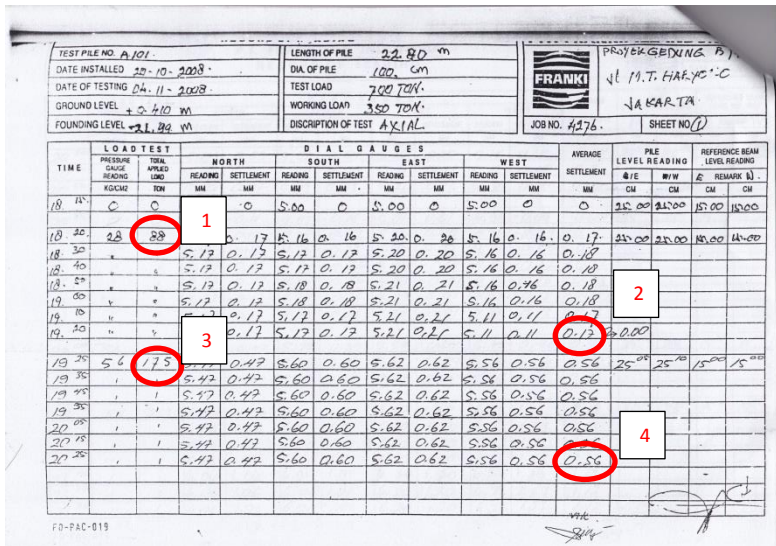 TEST PILE NO. A101.
DATE INSTALLED 20-10-2008.
DATE OF TESTING 04-11-2008.
GROUND LEVEL + 0.410 M
FOUNDING LEVEL -21.99 M
LENGTH OF PILE 22.80 m
DIA. OF PILE 100. cm
TEST LOAD 700 TON.
WORKING LOAD 350 TON.
DISCRIPTION OF TEST AXIAL
FRANKI
PROYEK GEDUNG
JAKARTA
JOB NO. 4276. SHEET NO. (1)
LOAD TEST DIAL GAUGES
TIME PRESSURE GAUGE READING TOTAL APPLIED LOAD NORTH SOUTH EAST WEST AVERAGE SETTLEMENT PILE LEVEL READING REFERENCE BEAM LEVEL READING
READING SETTLEMENT READING SETTLEMENT READING SETTLEMENT READING SETTLEMENT REMARK
KG/CM2 TON MM MM MM MM MM MM MM MM MM CM CM CM CM
18. 15. 0 0 0 5.00 0 5.00 0 5.00 0 0 25.00 25.00 15.00 15.00
1
18. 20. 28 88 0. 17 5. 16 0. 16 5. 20. 0. 20 5. 16 0. 16. 0. 17.
18. 30 " " 5. 17 0. 17 5. 17 0. 17 5. 20 0. 20 5. 16 0. 16 0. 18
18. 40 " " 5. 17 0. 17 5. 17 0. 17 5. 20 0. 20 5. 16 0. 16 0. 18
18. 50 " " 5. 17 0. 17 5. 18 0. 18 5. 21 0. 21 5. 16 0.16 0. 18
2
19. 00 " " 5.17 0. 17 5. 18 0. 18 5.21 0. 21 5. 16 0.16 0.18
19. 10 " " 0.17 5,17 0.17 5,21 0,21 5,11 0,11 0.17
3
19. 20 " " 0.17 5,17 0.17 5,21 0,21 5,11 0,11 0.17
19 25 56 175 0.47 5.60 0.60 5.62 0.62 5.56 0.56 0.56 25 05 25 10 15 00 15 00
19 35 " " 5.47 0.47 5.60 0.60 5.62 0.62 5.56 0.56 0.56
19 45 " " 5.47 0.47 5.60 0.60 5.62 0.62 5.56 0.56 0.56
19 55 " " 5.47 0.47 5.60 0.60 5.62 0.62 5.56 0.56 0.56
20 05 " " 5.47 0.47 5.60 0.60 5.62 0.62 5.56 0.56 0.56
4
20 15 " " 5.47 0.47 5.60 0.60 5.62 0.62 5.56 0.56 0.56
20 25 " " 5.47 0.47 5.60 0.60 5.62 0.62 5.56 0.56 0.56
FO-PAC-019